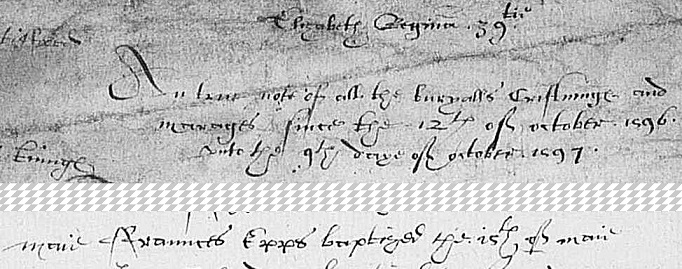 Elizabeth Regina 39
A true note of all the buryalls Cristninge and
mariages since the 12th of october 1596
unto the 9th daye of october 1597
maie Fraunces Epps baptized the 15th of maie